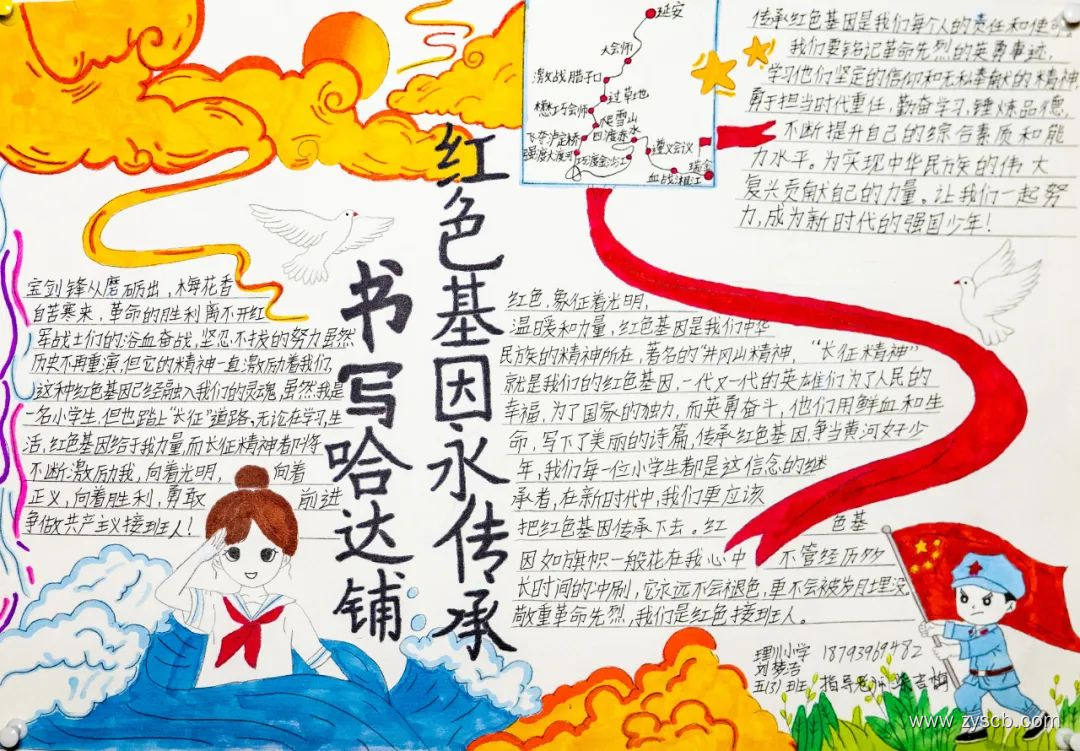 红色基因永传承
书写哈达铺
延安
大会师
激战腊子口
过草地
懋巧会师
爬雪山
飞夺泸定桥
四渡赤水
强渡大渡河
巧渡金沙江
遵义会议
瑞金
血战湘江
传承红色基因是我们每个人的责任和使命
我们要铭记革命先烈的英勇事迹，
学习他们坚定的信仰和无私奉献的精神
勇于担当时代重任，勤奋学习，锤炼品德，
不断提升自己的综合素质和能
力水平。为实现中华民族的伟大
复兴贡献自己的力量。让我们一起努
力，成为新时代的强国少年！
宝剑锋从磨砺出，梅花香
自苦寒来，革命的胜利离不开红
军战士们的浴血奋战，坚忍不拔的努力虽然
历史不再重演，但它的精神一直激励着我们，
这种红色基因已经融入我们的灵魂，虽然我是
一名小学生，但也踏上“长征”道路，无论在学习，生
活，红色基因给于我力量，而长征精神都将
不断激励我，向着光明，向着
正义，向着胜利，勇敢前进
争做共产主义接班人！
红色，象征着光明，
温暖和力量，红色基因是我们中华
民族的精神所在，著名的“井冈山精神，“长征精神”
就是我们的红色基因，一代又一代的英雄们为了人民的
幸福，为了国家的独力，而英勇奋斗，他们用鲜血和生
命，写下了美丽的诗篇，传承红色基因，争当黄河好少
年，我们每一位小学生都是这信念的继
承者，在新时代中，我们更应该
把红色基因传承下去。红色基
因如旗帜一般花在我心中不管经历多
长时间的冲刷，它永远不会褪色，更不会被岁月埋没，
敬重革命先烈，我们是红色接班人。
理川小学 18793969482
刘梦洁
五(3)班 指导老师
www.zyscb.com